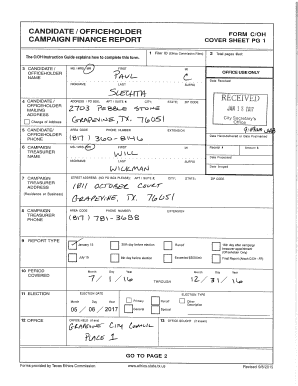 CANDIDATE / OFFICEHOLDER
CAMPAIGN FINANCE REPORT
FORM C/OH
COVER SHEET PG 1
The C/OH Instruction Guide explains how to complete this form.
1 Filer ID (Ethics Commission Filers)
2 Total pages filed:
3 CANDIDATE / OFFICEHOLDER NAME
MS / MRS / MR FIRST MI
PAUL C
NICKNAME LAST SUFFIX
SLECHTA
OFFICE USE ONLY
Date Received
RECEIVED
City Secretary's Office
4 CANDIDATE / OFFICEHOLDER MAILING ADDRESS
Change of Address
ADDRESS / PO BOX; APT / SUITE #; CITY; STATE; ZIP CODE
2703 PEBBLE STONE
GRAPEVINE, TX. 76051
5 CANDIDATE / OFFICEHOLDER PHONE
AREA CODE PHONE NUMBER EXTENSION
(817) 360-8146
Date Hand-delivered or Date Postmarked
6 CAMPAIGN TREASURER NAME
MS / MRS / MR FIRST MI
WILL
NICKNAME LAST SUFFIX
WICKMAN
Receipt # Amount $
Date Processed
Date Imaged
7 CAMPAIGN TREASURER ADDRESS
(Residence or Business)
STREET ADDRESS (NO PO BOX PLEASE); APT / SUITE #; CITY; STATE; ZIP CODE
1811 OCTOBER COURT
GRAPEVINE, TX. 76051
8 CAMPAIGN TREASURER PHONE
AREA CODE PHONE NUMBER EXTENSION
(817) 781-3688
9 REPORT TYPE
January 15
30th day before election
Runoff
15th day after campaign treasurer appointment (Officeholder Only)
July 15
8th day before election
Exceeded $500 limit
Final Report (Attach C/OH - FR)
10 PERIOD COVERED
Month Day Year
7/1/16
THROUGH
Month Day Year
12/31/16
11 ELECTION
ELECTION DATE
Month Day Year
05/06/2017
ELECTION TYPE
Primary
Runoff
Other Description
General
Special
12 OFFICE
OFFICE HELD (if any)
GRAPEVINE CITY COUNCIL
PLACE 1
13 OFFICE SOUGHT (if known)
GO TO PAGE 2
Forms provided by Texas Ethics Commission
www.ethics.state.tx.us
Revised 9/8/2015